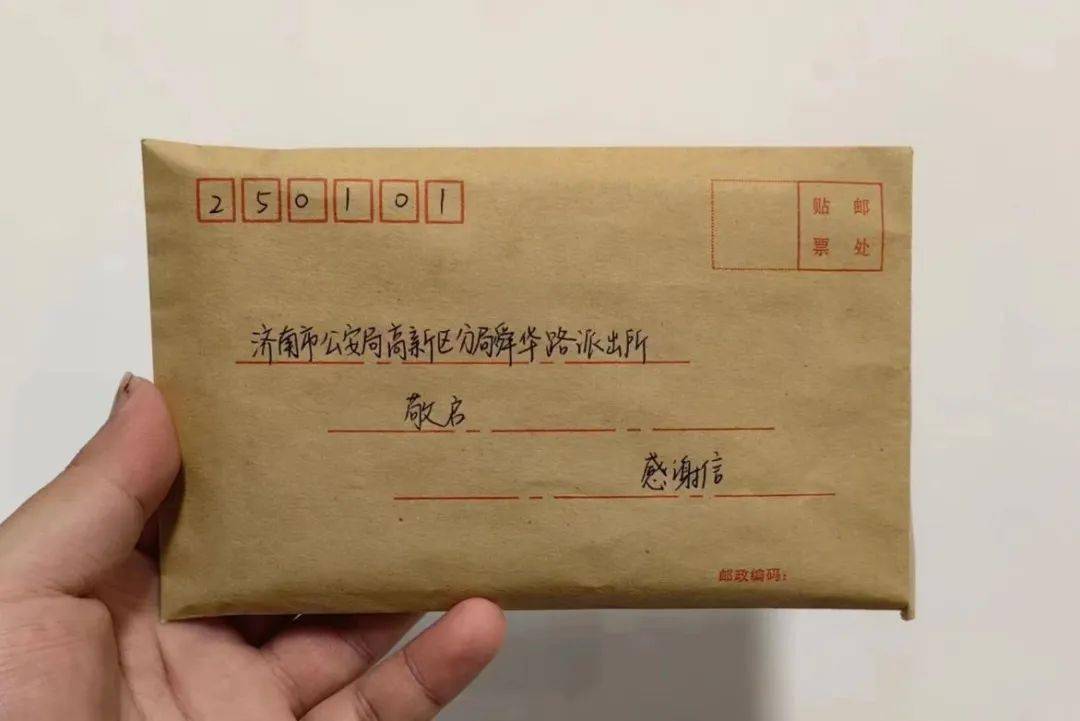 250101
贴邮
票处
济南市公安局高新区分局舜华路派出所
敬启
感谢信
邮政编码：